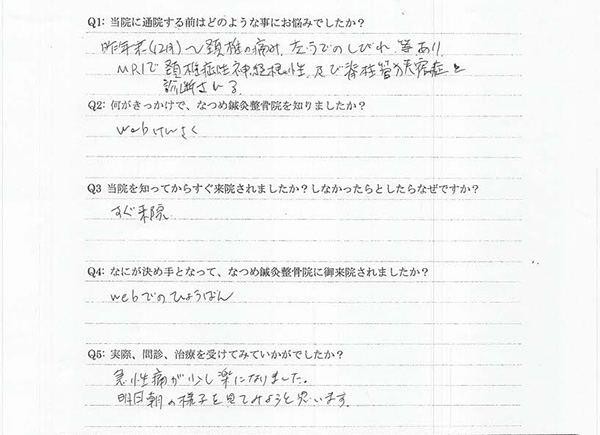 Q1: 当院に通院する前はどのような事にお悩みでしたか？
昨年末(12月)〜頚椎の痛み、左うでのしびれ 等あり
MRIで頚椎症性神経根症 及び脊柱管狭窄症と
診断される
Q2: 何がきっかけで、なつめ鍼灸整骨院を知りましたか？
webけんさく
Q3 当院を知ってからすぐ来院されましたか？しなかったらとしたらなぜですか？
すぐ来院
Q4: なにが決め手となって、なつめ鍼灸整骨院に御来院されましたか？
webでのひょうばん
Q5: 実際、問診、治療を受けてみていかがでしたか？
急性痛が少し楽になりました。
明日朝の様子を見てみようと思います。